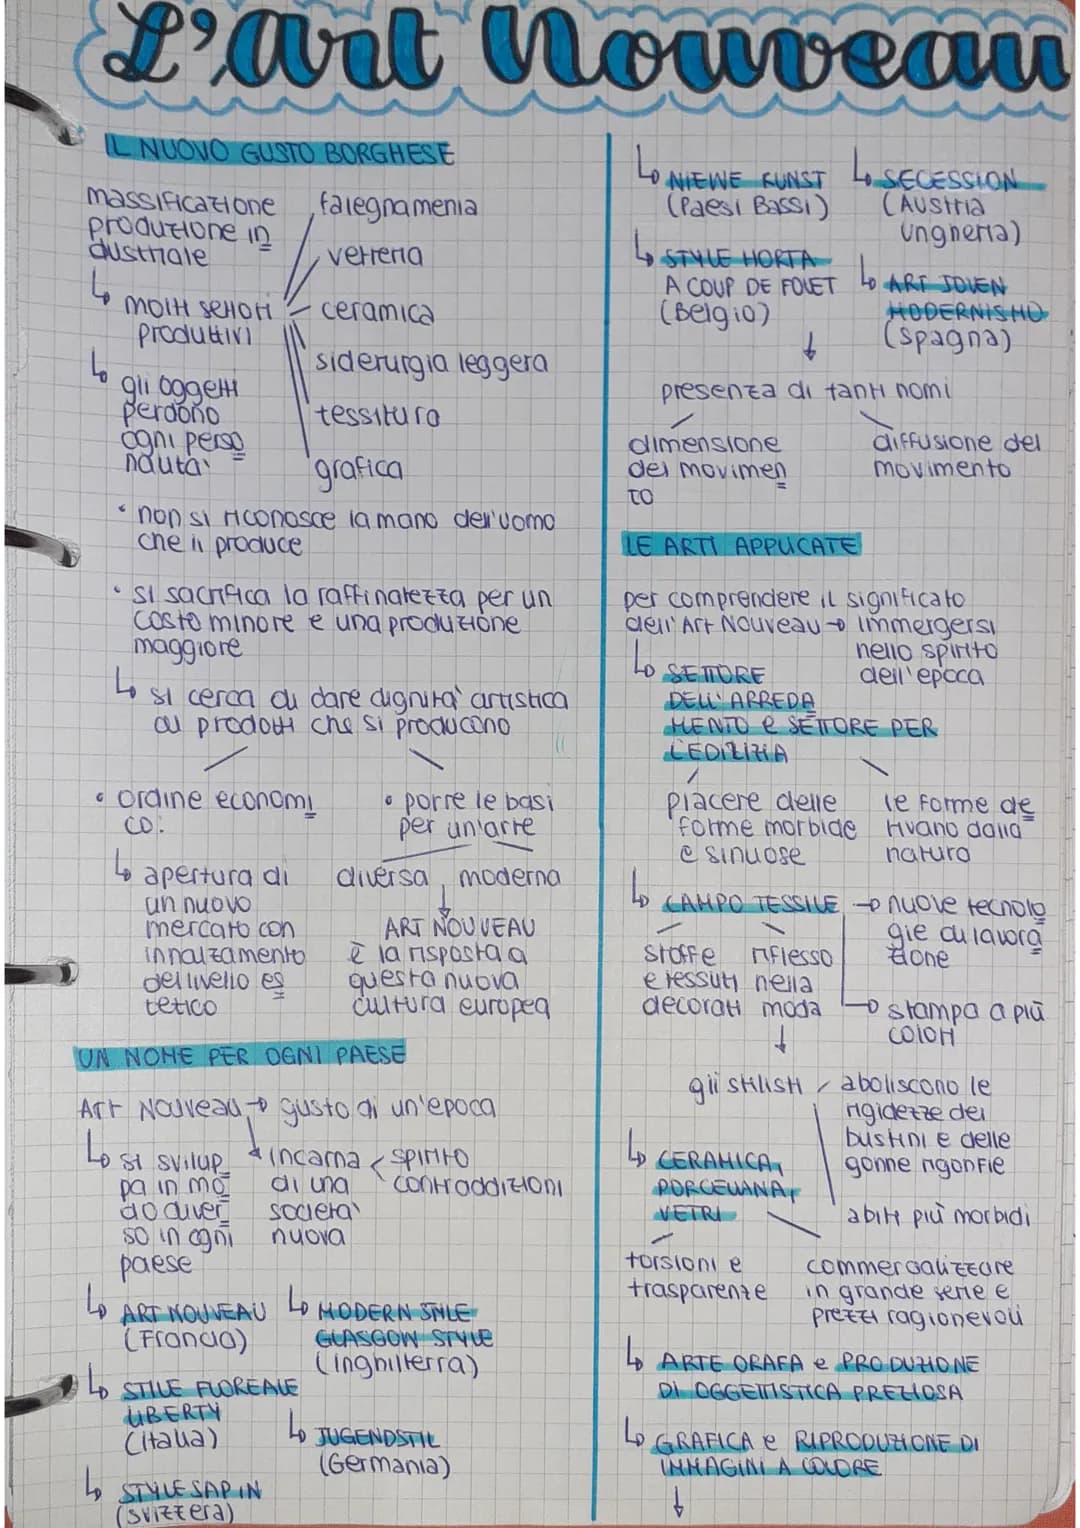 L'art Nouveau
IL NUOVO GUSTO BORGHESE
massificazione
produzione in
dustriale
molti settori
produttivi
falegnameria
vetreria
ceramica
siderurgia leggera
tessitura
grafica
gli oggetti
perdono
ogni perso
nalità
• non si riconosce la mano dell'uomo
che li produce
• si sacrifica la raffinatezza per un
costo minore e una produzione
maggiore
si cerca di dare dignità artistica
ai prodotti che si producono
• ordine economi
co:
apertura di
un nuovo
mercato con
innalzamento
del livello es
tetico
• porre le basi
per un'arte
diversa, moderna
ART NOUVEAU
è la risposta a
questa nuova
cultura europea
UN NOME PER OGNI PAESE
Art Nouveau → gusto di un'epoca
si svilup
pa in mo
do diver
so in ogni
paese
incarna
di una
società
nuova
spirito
contraddizioni
ART NOUVEAU
(Francia)
MODERN STYLE
GLASGOW STYLE
(inghilterra)
STILE FLOREALE
LIBERTY
(italia)
JUGENDSTIL
(Germania)
STYLE SAPIN
(svizzera)
NIEWE KUNST
(Paesi Bassi)
SECESSION
(Austria
ungheria)
STYLE HORTA
A COUP DE FOUET
(Belgio)
ART JOVEN
MODERNISMO
(spagna)
presenza di tanti nomi
dimensione
del movimen
to
diffusione del
movimento
LE ARTI APPLICATE
per comprendere il significato
dell'Art Nouveau → immergersi
nello spirito
dell'epoca
SETTORE
DELL'ARREDA
MENTO e SETTORE PER
L'EDILIZIA
piacere delle
forme morbide
e sinuose
le forme de
rivano dalla
natura
CAMPO TESSILE → nuove tecnolo
gie di lavora
zione
stampa a più
colori
stoffe
e tessuti
decorati
riflesso
nella
moda
gli stilisti
aboliscono le
rigidezze dei
bustini e delle
gonne rigonfie
abiti più morbidi
CERAMICA,
PORCELLANA,
VETRI
torsioni e
trasparenze
commercializzare
in grande serie e
prezzi ragionevoli
ARTE ORAFA e PRODUZIONE
DI OGGETTISTICA PREZIOSA
GRAFICA e RIPRODUZIONE DI
IMMAGINI A COLORE